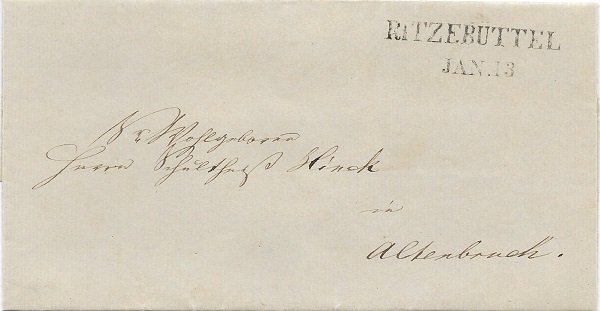 RITZEBUTTEL
JAN. 13
Sr Wohlgeboren
Herrn Schultheiß Hinck
in
Altenbruch.